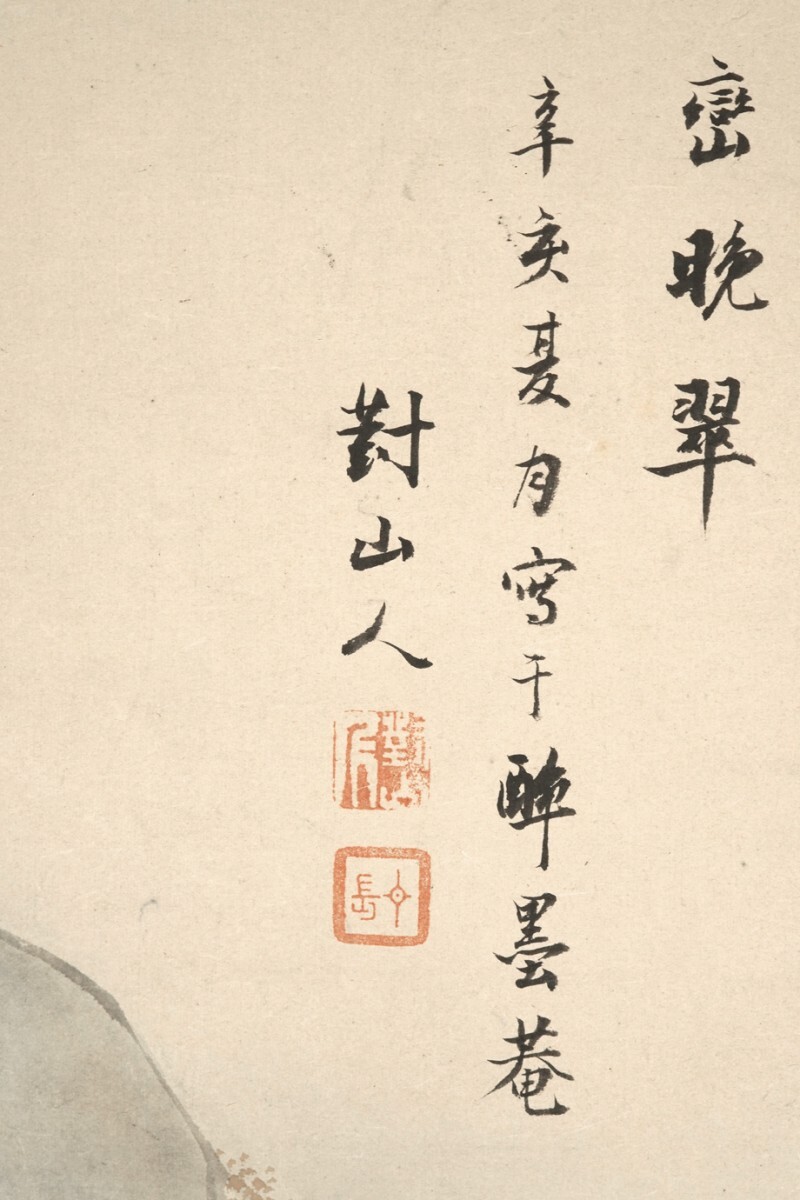 巒晚翠
辛亥夏月寫于醉墨菴
對山人